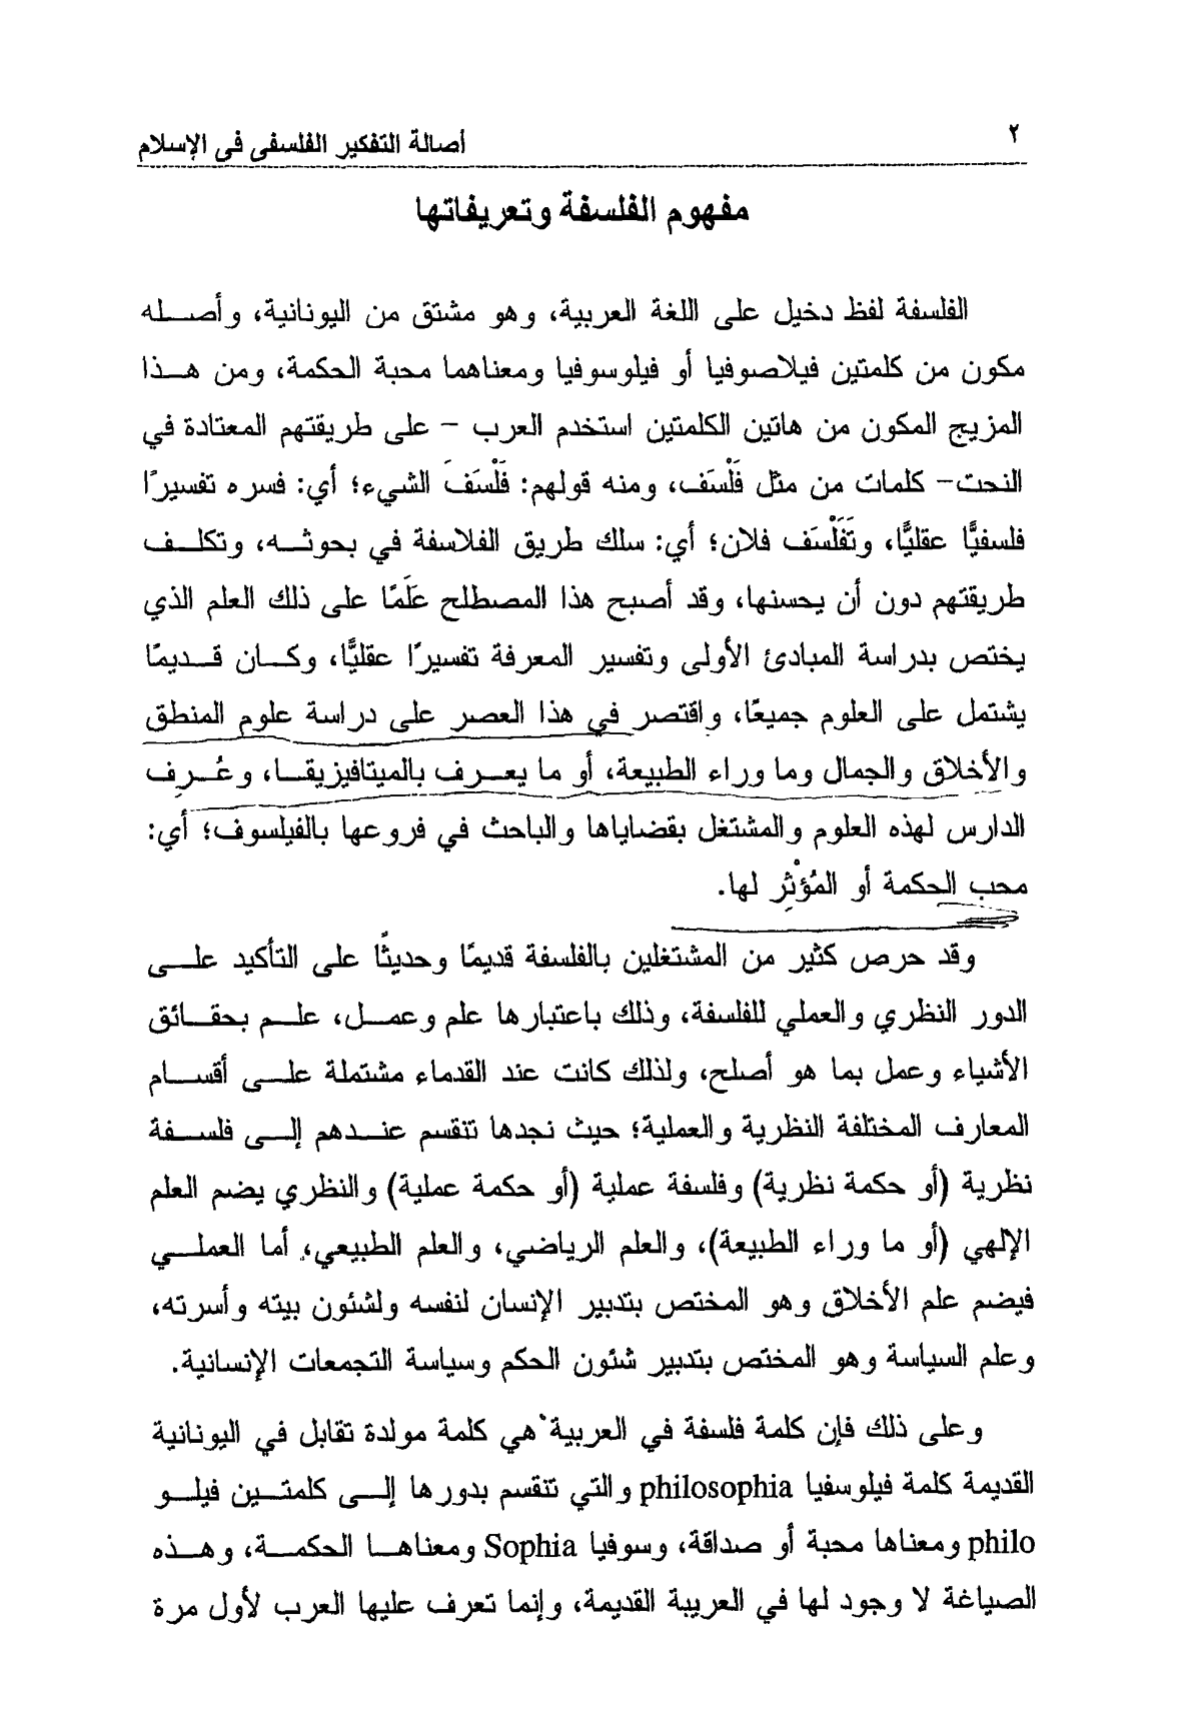 ٢
أصالة التفكير الفلسفى فى الإسلام
مفهوم الفلسفة وتعريفاتها
الفلسفة لفظ دخيل على اللغة العربية، وهو مشتق من اليونانية، وأصله
مكون من كلمتين فيلاصوفيا أو فيلوسوفيا ومعناهما محبة الحكمة، ومن هذا
المزيج المكون من هاتين الكلمتين استخدم العرب – على طريقتهم المعتادة في
النحت– كلمات من مثل فَلْسَف، ومنه قولهم: فَلْسَفَ الشيء؛ أي: فسره تفسيرًا
فلسفيًّا عقليًّا، وتَفَلْسَف فلان؛ أي: سلك طريق الفلاسفة في بحوثه، وتكلف
طريقتهم دون أن يحسنها، وقد أصبح هذا المصطلح عَلَمًا على ذلك العلم الذي
يختص بدراسة المبادئ الأولى وتفسير المعرفة تفسيرًا عقليًّا، وكان قديمًا
يشتمل على العلوم جميعًا، واقتصر في هذا العصر على دراسة علوم المنطق
والأخلاق والجمال وما وراء الطبيعة، أو ما يعرف بالميتافيزيقا، وعُرِف
الدارس لهذه العلوم والمشتغل بقضاياها والباحث في فروعها بالفيلسوف؛ أي:
محب الحكمة أو المُؤْثِر لها.
وقد حرص كثير من المشتغلين بالفلسفة قديمًا وحديثًا على التأكيد على
الدور النظري والعملي للفلسفة، وذلك باعتبارها علم وعمل، علم بحقائق
الأشياء وعمل بما هو أصلح، ولذلك كانت عند القدماء مشتملة على أقسام
المعارف المختلفة النظرية والعملية؛ حيث نجدها تنقسم عندهم إلى فلسفة
نظرية (أو حكمة نظرية) وفلسفة عملية (أو حكمة عملية) والنظري يضم العلم
الإلهي (أو ما وراء الطبيعة)، والعلم الرياضي، والعلم الطبيعي، أما العملي
فيضم علم الأخلاق وهو المختص بتدبير الإنسان لنفسه ولشئون بيته وأسرته،
وعلم السياسة وهو المختص بتدبير شئون الحكم وسياسة التجمعات الإنسانية.
وعلى ذلك فإن كلمة فلسفة في العربية هي كلمة مولدة تقابل في اليونانية
القديمة كلمة فيلوسفيا philosophia والتي تنقسم بدورها إلى كلمتين فيلو
philo ومعناها محبة أو صداقة، وسوفيا Sophia ومعناها الحكمة، وهذه
الصياغة لا وجود لها في العريبة القديمة، وإنما تعرف عليها العرب لأول مرة